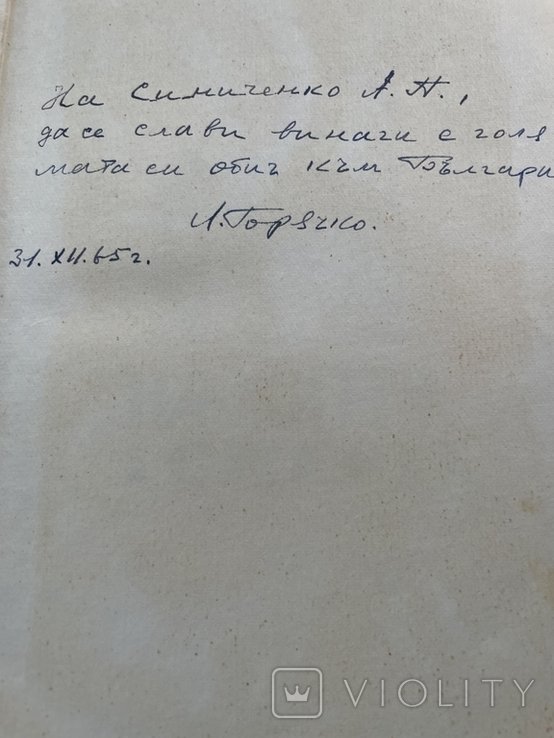 На Синиченко А. П.,
да се слави винаги с голя
мата си обич към Българи
Л. Горячко.
31. XII. 65 г.
VIOLITY